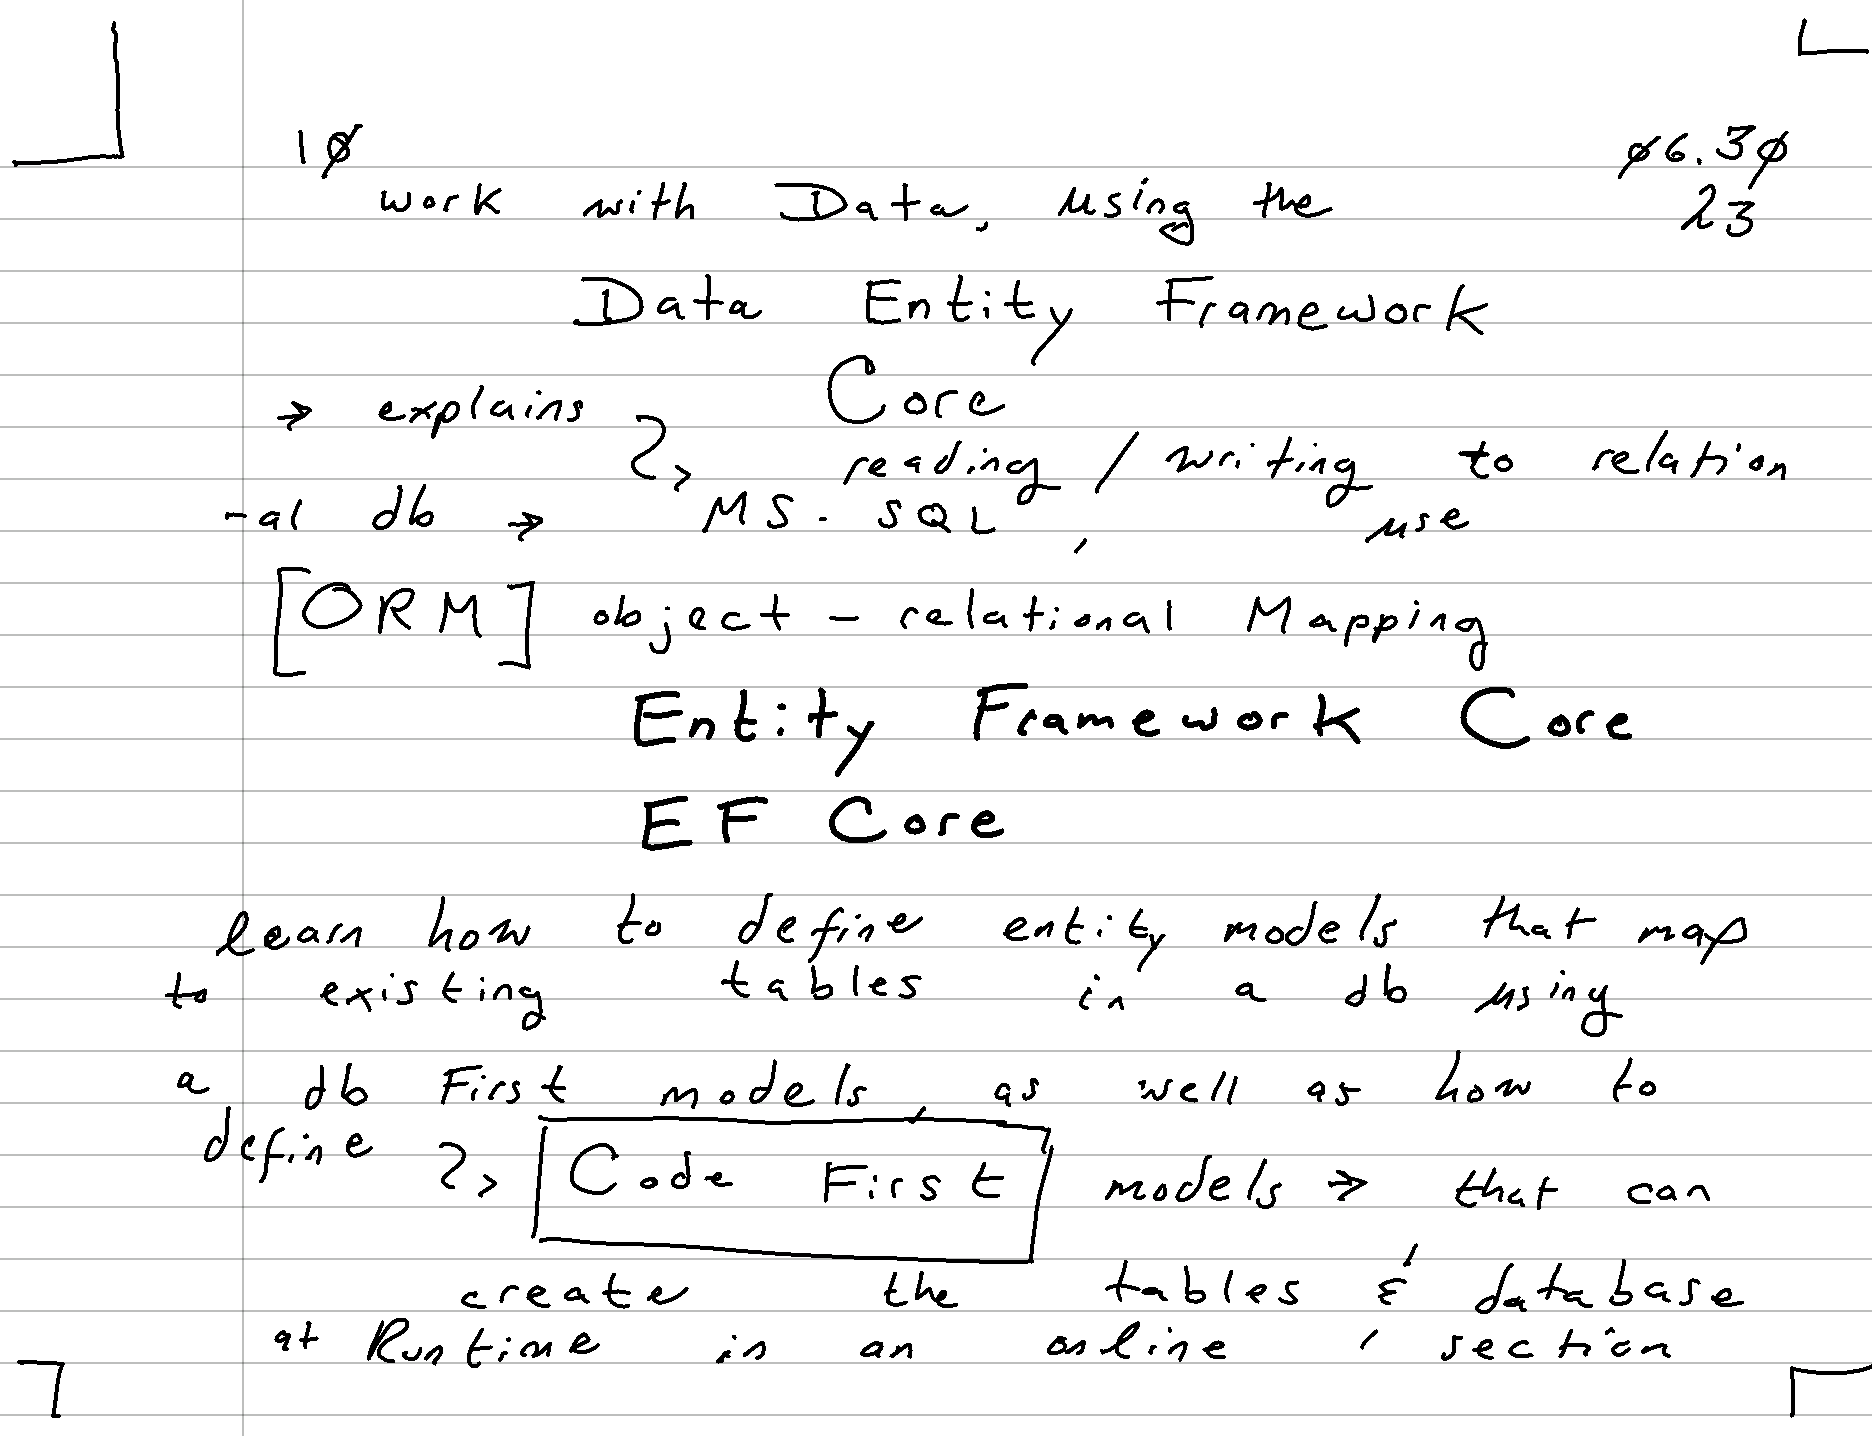 10 06.30
work with Data, using the 23
Data Entity Framework
Core
→ explains
reading / writing to relation
-al db → MS. SQL, use
[ORM] object - relational Mapping
Entity Framework Core
EF Core
learn how to define entity models that map
to existing tables in a db using
a db First models, as well as how to
define
Code First models → that can
create the tables & database
at Runtime in an online section